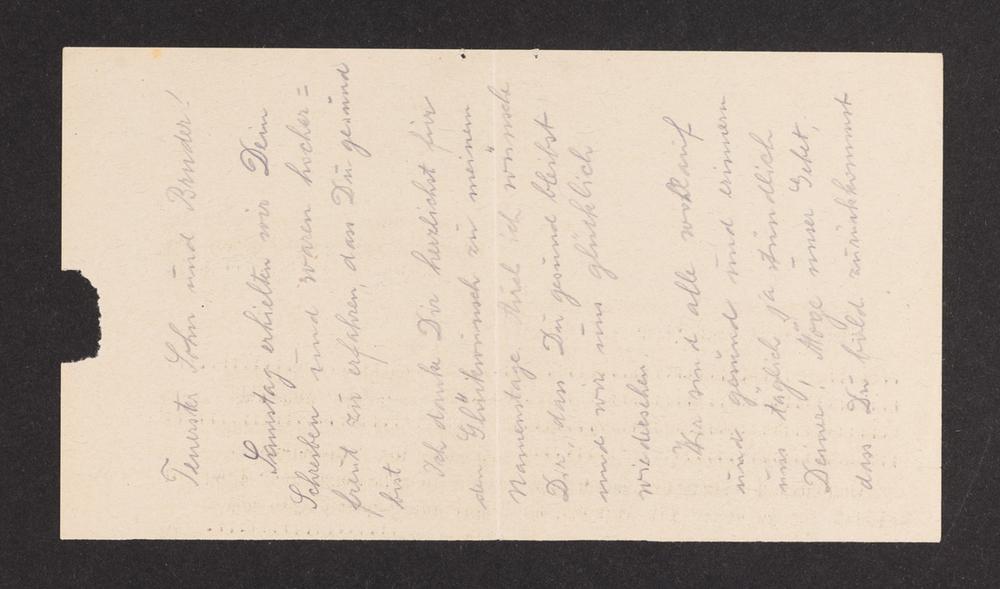 Teuerster Sohn und Bruder!
Samstag erhielten wir Dein
Schreiben und waren hocher=
freut zu erfahren, dass Du gesund
bist
Ich danke Dir herzlichst für
den Glückwunsch zu meinem
Namenstage. Auch ich wünsche
Dir, dass Du gesund bleibst
und wir uns glücklich
wiedersehen.
Wir sind alle wohlauf
und gesund und erinnern
uns täglich ja stündlich
Deiner, Möge unser Gebet,
dass Du bald zurückkommst